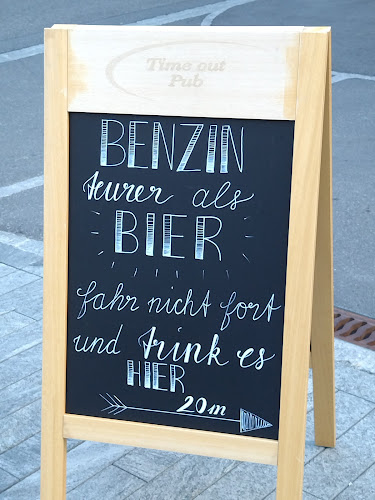 Time out
Pub
BENZIN
teurer als
BIER
fahr nicht fort
und trink es
HIER
20m